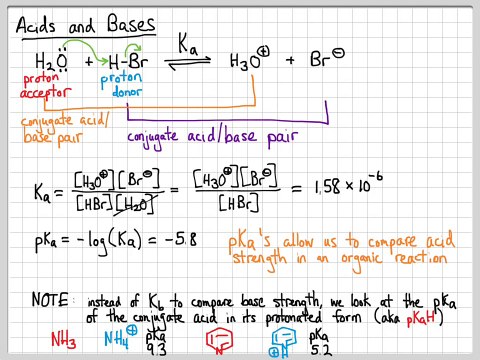 Acids and Bases
H₂Ö: + H-B̈r ⇌ H₃O⊕ + Br⊖
Ka
proton acceptor
proton donor
conjugate acid/
base pair
conjugate acid/base pair
Ka = [H₃O⊕][Br⊖] / [HBr][H₂O] = [H₃O⊕][Br⊖] / [HBr] = 1.58 × 10⁻⁶
pKa = -log(Ka) = -5.8
pKa's allow us to compare acid
strength in an organic reaction
NOTE: instead of Kb to compare base strength, we look at the pKa
of the conjugate acid in its protonated form (aka pKaH)
NH₃ NH₄⊕ pKa 9.3 N N⊕ H pKa 5.2